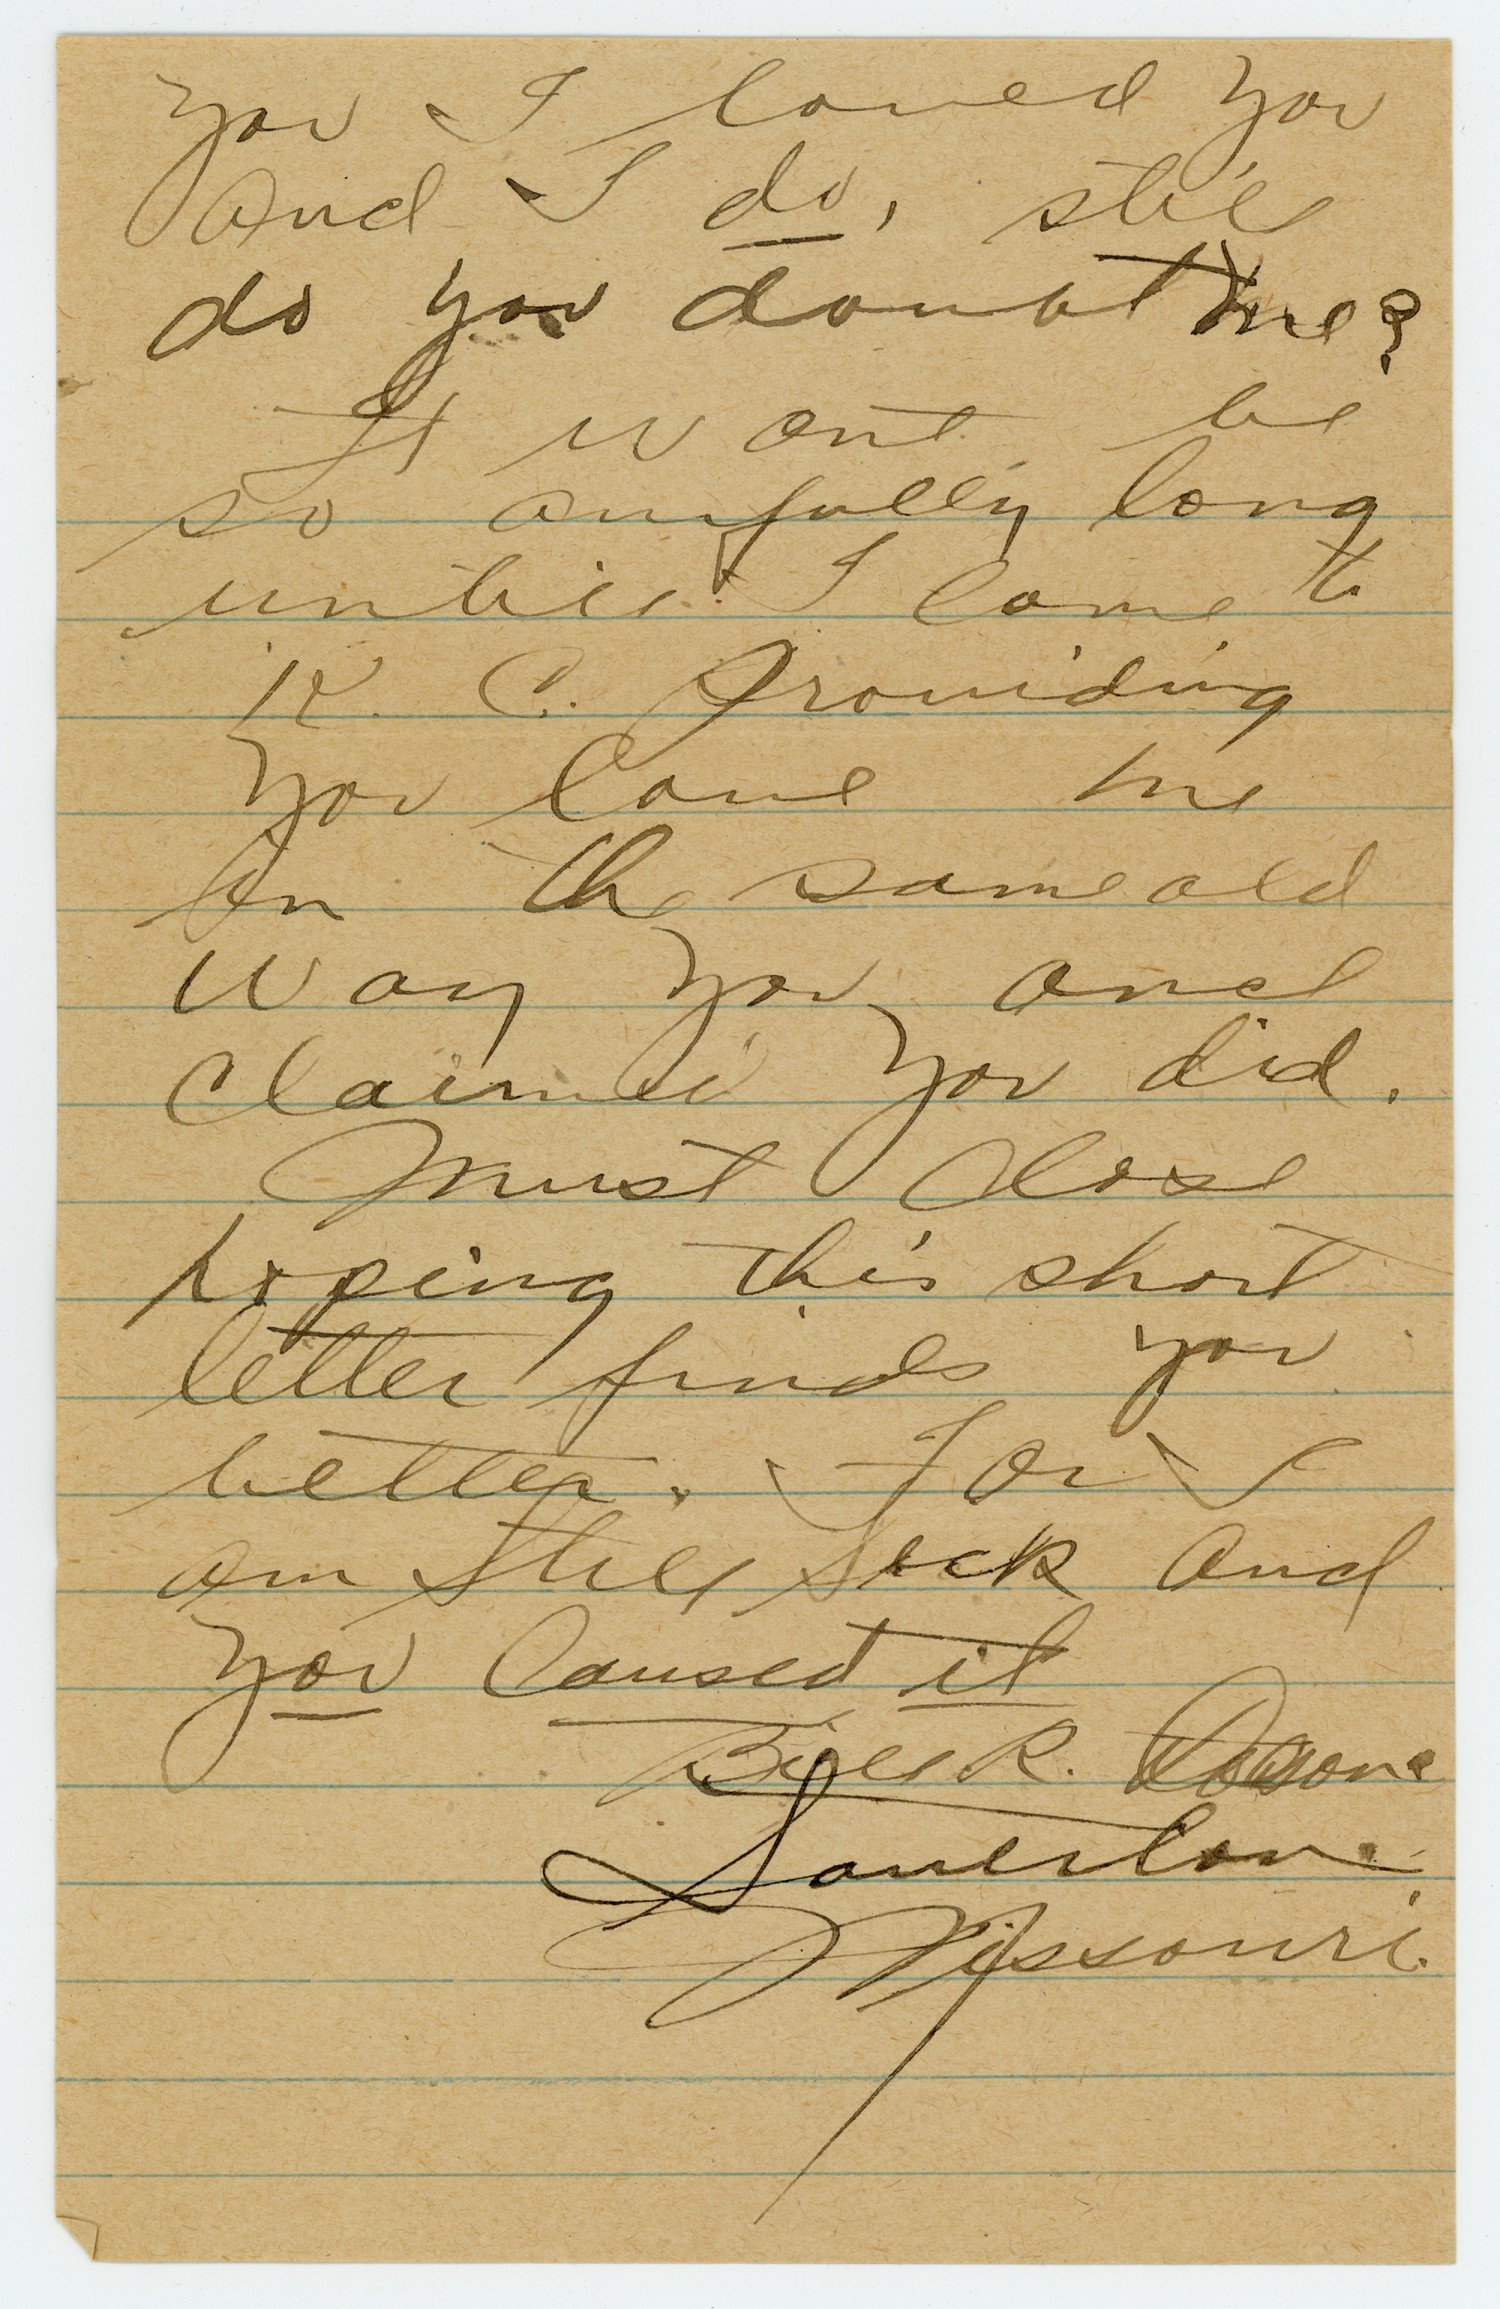 you I loved you
and I do, still
do you doubt me?
It wont be
so awfully long
until I come to
K. C. Providing
you love me
in the same old
way you once
claimed you did.
Must close
hoping this short
letter finds you
better. For I
am still sick and
you caused it
Bill R.
Missouri.